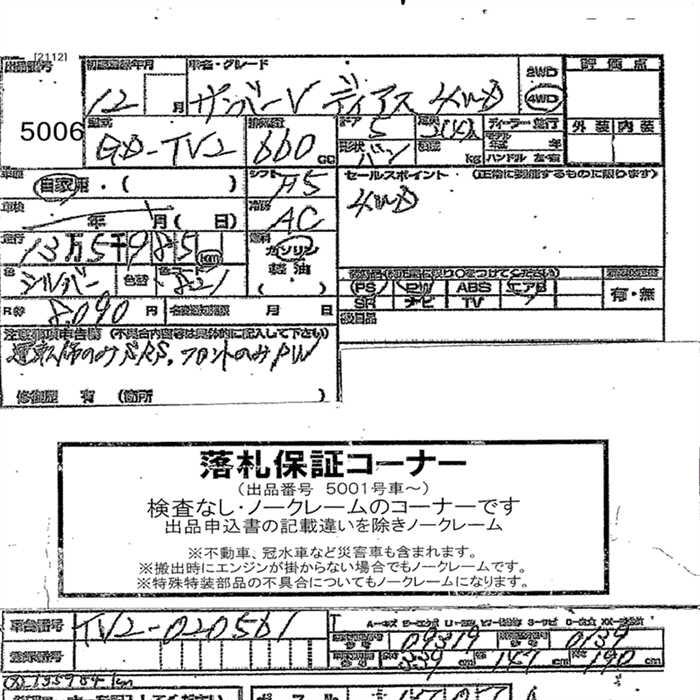 [2112]
出品番号 初度登録年月 車名・グレード 2WD 4WD 評価点
5006 12 月 サンバーV ディアス 4WD
外装 内装
型式 GD-TV2 排気量 660 cc ドア 5 形状 バン 定員 2(4)人 積載 kg ディーラー 並行 モデル年式 年 ハンドル 左・右
車歴 自家用・( ) シフト F5 セールスポイント・(正常に機能するものに限ります)
車検 年 月( 日) 冷房 AC 4WD
走行 13万5千985 km 燃料 ガソリン 軽油 ( )
色 シルバー 色替 カラーNo 821
PS PW ABS エアB 有・無
SR ナビ TV
R券 8,090 円 名義変更期限 月 日
注意事項申告書 (不具合内容等は具体的に記入して下さい)
運転席のみSRS、フロントのみPW
修復歴 有 (箇所 )
落札保証コーナー
(出品番号 5001号車~)
検査なし・ノークレームのコーナーです
出品申込書の記載違いを除きノークレーム
※不動車、冠水車など災害車も含まれます。
※搬出時にエンジンが掛からない場合でもノークレームです。
※特殊特装部品の不具合についてもノークレームになります。
車台番号 TV2-020561
09319 0139
登録番号 339 cm 147 cm 190 cm